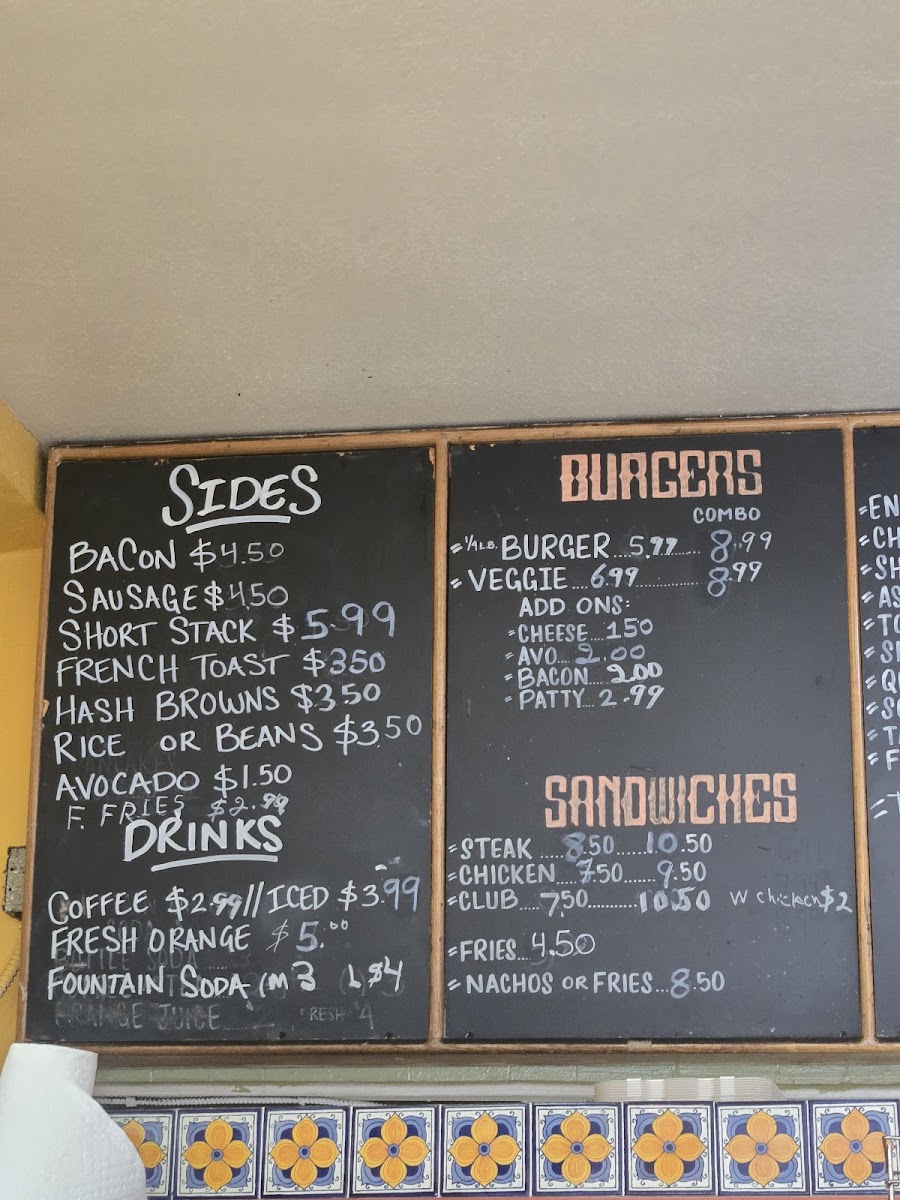 SIDES
BACON $4.50
SAUSAGE $4.50
SHORT STACK $5.99
FRENCH TOAST $350
HASH BROWNS $3.50
RICE OR BEANS $3.50
AVOCADO $1.50
F. FRIES $2.99
DRINKS
COFFEE $2.99//ICED $3.99
FRESH ORANGE $5.00
FOUNTAIN SODA M 3 L $4
ORANGE JUICE FRESH 4
BURGERS
COMBO
BURGER....5.99....8.99
VEGGIE...6.99............8.99
ADD ONS:
CHEESE....150
AVO....2.00
BACON....2.00
PATTY....2.99
SANDWICHES
STEAK.....8.50.....10.50
CHICKEN....7.50......9.50
CLUB....7.50..........10.50 W chicken $2
FRIES...4.50
NACHOS OR FRIES...8.50
EN
CH
SH
AS
TO
Q
F